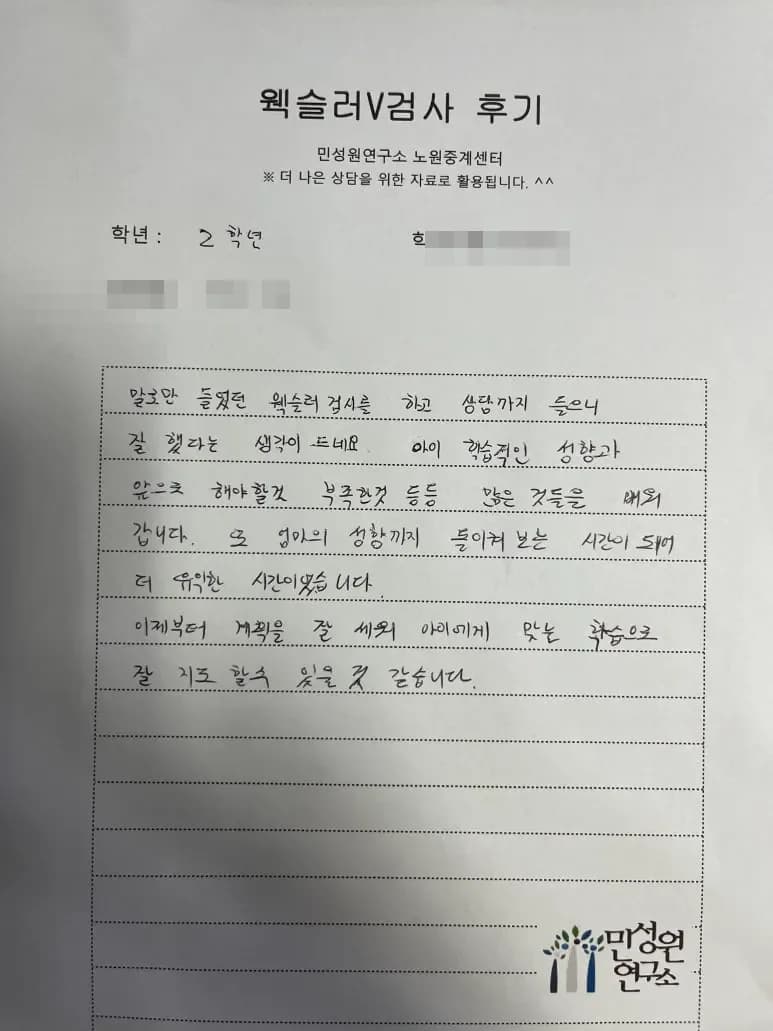 웩슬러V검사 후기
민성원연구소 노원중계센터
※ 더 나은 상담을 위한 자료로 활용됩니다. ^^
학년 : 2 학년
말로만 들었던 웩슬러 검사를 하고 상담까지 들으니
잘 했다는 생각이 드네요. 아이 학습적인 성향과
앞으로 해야할것 부족한것 등등 많은 것들을 배워
갑니다. 또 엄마의 성향까지 들이켜 보는 시간이 되어
더 유익한 시간이었습니다.
이제부터 계획을 잘 세워 아이에게 맞는 학습으로
잘 지도 할수 있을 것 같습니다.
민성원
연구소